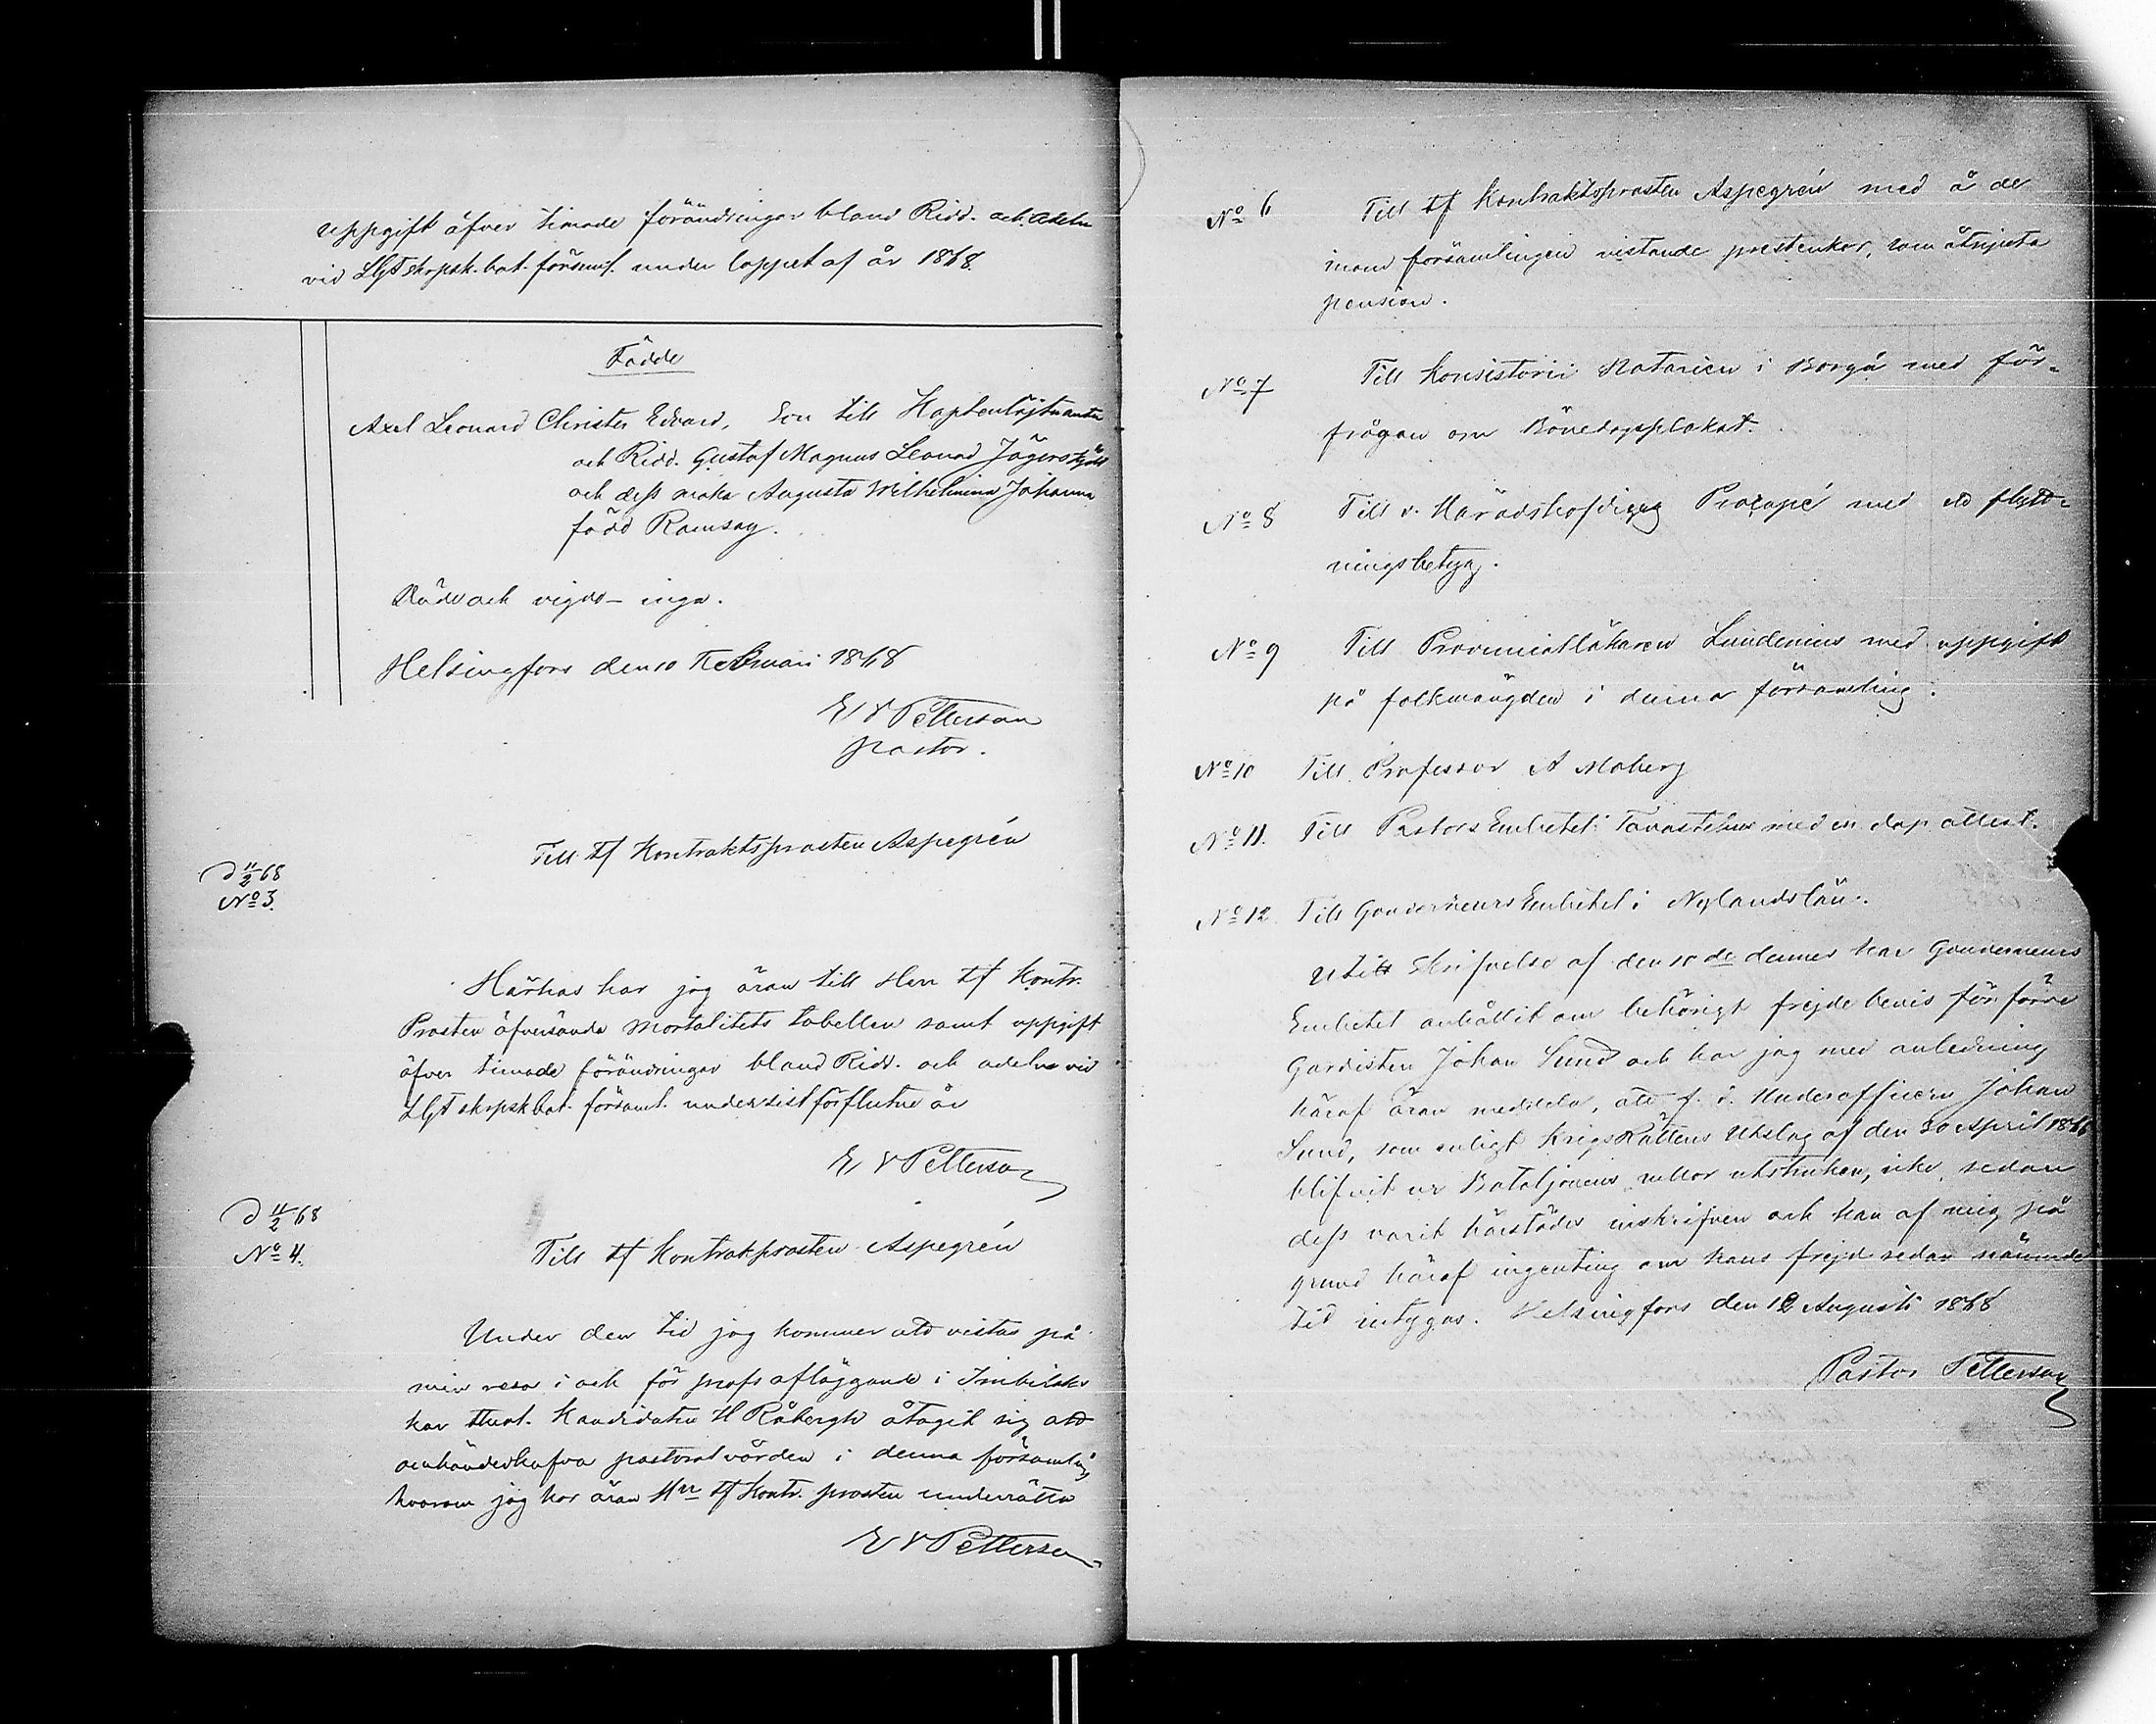 Uppgift öfver timade förändringar bland Ridd. och Adeln
vid LGt skrpsk. bat. församl. under loppet af år 1868.
Födde
Axel Leonard Christer Edvard, Son till Kaptenlöjtnanten
och Ridd. Gustaf Magnus Leonard Jägerskjöld
och dess maka Augusta Wilhelmina Johanna
född Ramsay.
Döde och vigde – inga.
Helsingfors den 10 Februari 1868
E V Petterson
pastor.
d 11/2 68
No 3.
Till Tf Kontraktsprosten Aspegrén
Härhos har jag äran till Herr Tf Kontr.
Prosten öfversända mortalitets tabellen samt uppgift
öfver timade förändringar bland Ridd. och adeln vid
LGt skrpsk bat. församl. under sist förflutne år
E V Petterson
d 11/2 68
No 4.
Till Tf Kontraktsprosten Aspegrén
Under den tid jag kommer att vistas på
min resa i och för profs afläggande i Imbilaks
har theol. Kandidaten H Råbergh åtagit sig att
omhänderhafva pastoralvården i denna församling,
hvarom jag har äran Hrr Tf Kontr. prosten underrätta
E V Petterson
No 6 Till Tf Kontraktsprosten Aspegrén med å de
inom församlingen vistande prestenkor, som åtnjuta
pension.
No 7 Till Konsistorii Notarien i Borgå med för-
frågan om Bönedagsplakat.
No 8 Till v. Häradshöfding Procopé med ett flytt-
ningsbetyg.
No 9 Till Provincialläkaren Lundenius med uppgift
på folkmängden i denna församling.
No 10 Till Professor A Moberg
No 11. Till Pastors Embetet i Tavastehus med en dop attest.
No 12 Till Gouverneurs Embetet i Nylands län.
Uti Skrifvelse af den 10de dennes har Gouverneurs
Embetet anhållit om behörigt frejdebevis för förre
Gardisten Johan Sund och har jag med anledning
häraf äran meddela, att f. d. Underofficern Johan
Sund, som enligt Krigs Rättens Utslag af den 30 April 1866
blifvit ur Bataljonens rullor utstruken, icke sedan
dess varit härstädes inskrifven och kan af mig på
grund häraf ingenting om hans frejd sedan nämnde
tid intygas. Helsingfors den 12 Augusti 1868
Pastor Petterson